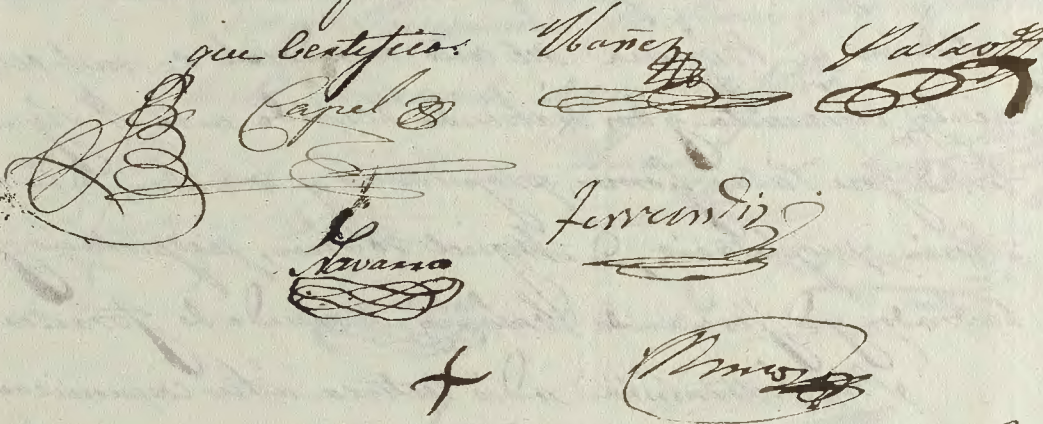 que Certifico.
Ybañez
Palao
Capel
Ferrandiz
Navarro